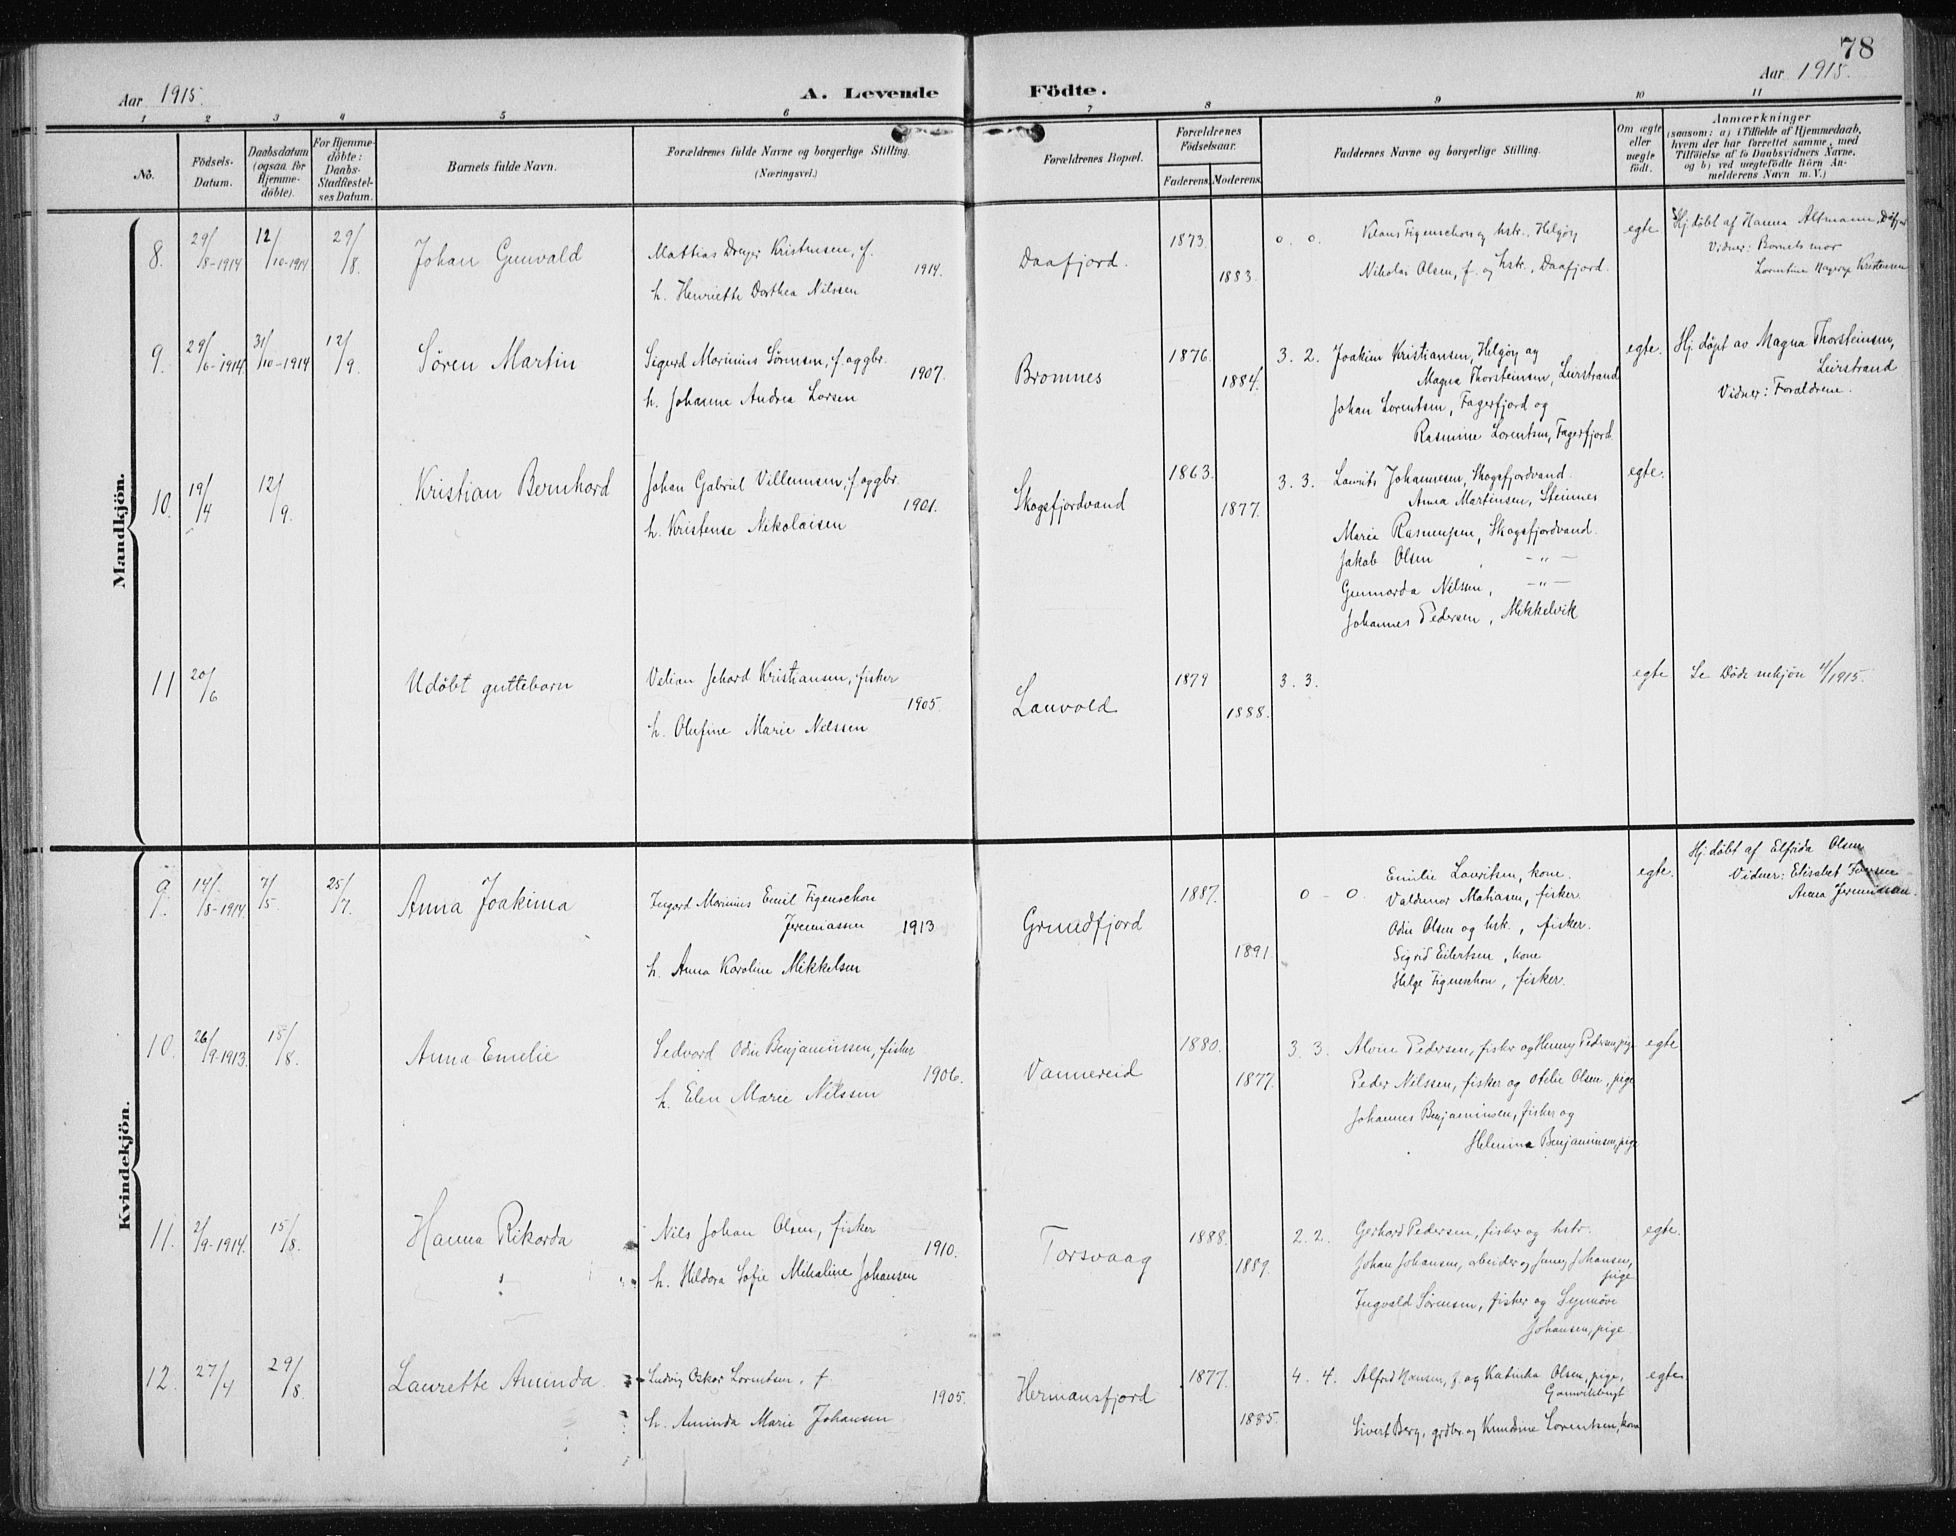 78
Aar 1915.
A. Levende Födte.
Aar 1915.
1 2 3 4 5 6 7 8 9 10 11
No.
Födsels-Datum.
Daabsdatum (ogsaa for Hjemme-döbte).
For Hjemme-döbte: Daabs-Stadfæstel-ses Datum.
Barnets fulde Navn.
Forældrenes fulde Navne og borgerlige Stilling.
(Næringsvei.)
Forældrenes Bopæl.
Forældrenes Födselsaar.
Faderens. Moderens.
Faddernes Navne og borgerlige Stilling.
Om ægte eller uægte födt.
Anmærkninger
(saasom: a) i Tilfælde af Hjemmedaab,
hvem der har forrettet samme, med
Tilföielse af to Daabsvidners Navne,
og b) ved uægtefödte Börn An-
melderens Navn m. V.)
Mandkjön.
8. 29/8-1914 12/10-1914 29/8. Johan Gunvald
Mattias Dreyer Kristensen, f.
1914.
h. Henriette Dorthea Nilssen
Daafjord.
1873.
1883.
0. 0.
Klaus Figenschou og hstr., Helgøy
Nikolai Olsen, f. og hstr., Daafjord.
egte.
Hj. døbt af Hanna Altmann,
Vidner: Barnets mor
Lorentine Hagerup Kristensen
9. 29/6-1914 31/10-1914 12/9. Søren Martin
Sigurd Marinius Sørensen, f. og gbr.
1907.
h. Johanne Andrea Larsen
Bromnes
1876.
1884.
3. 2.
Joakim Kristiansen, Helgøy og
Magna Thorsteinsen, Leirstrand
Johan Lorentsen, Fagerfjord og
Rasmine Lorentsen, Fagerfjord.
egte.
Hj. døpt av Magna Thorsteinsen,
Leirstrand
Vidner: Forældrene.
10. 19/4 12/9. Kristian Bernhard
Johan Gabriel Villumsen, f. og gbr.
1901.
h. Kristense Nikolaisen
Skogsfjordvand
1863.
1877.
3. 3.
Laurits Johannesen, Skogsfjordvand.
Anna Martinsen, Steinnes
Marie Rasmussen, Skogsfjordvand.
Jakob Olsen, -"-
Gunnarda Nilsen, -"-
Johannes Pedersen, Mikkelvik
egte.
11 20/6 Udöbt guttebarn
Kristiansen, fisker
1905.
h. Olufine Marie Nilssen
Lanvold
1879
1888.
3. 3.
egte
Se Døde mkjøn 4/1915.
Kvindekjön.
9. 14/8-1914. 7/5 25/7. Anna Joakima
Ingard Marinius Emil Figenschou
Jeremiassen 1913
h. Anna Karoline Mikkelsen
Grundfjord
1887.
1891.
0 - 0.
Emilie Lauritsen, kone.
Valdemar Mathisen, fisker.
Odin Olsen og hstr., fisker.
Sigrid Eilertsen, kone
Helge Figenschou, fisker.
egte.
Hj. døbt af Elfrida Olsen
Vidner: Elisabet
Anna Jeremiassen.
10. 26/9-1913. 15/8. Anna Emelie
Sedvard Odin Benjaminssen, fisker
1906.
h. Elen Marie Nilssen
Vannereid
1880.
1877.
3. 3.
Alvin Pedersen, fisker og Henny Pedersen, pige
Peder Nilssen, fisker og Otelie Olsen, pige
Johannes Benjaminsen, fisker og
Helmina Benjaminsen, pige
egte
11. 2/9-1914. 15/8. Hanna Rikarda
Nils Johan Olsen, fisker
1910.
h. Hildora Sofie Mikaline Johansen
Torsvaag
1888.
1889.
2. 2.
Gerhard Pedersen, fisker og hstr.
Johan Johansen, arbeider og Jenny Johansen,
pige
Ingvald Sørensen, fisker og Synnöve
Johansen, pige
egte.
12. 27/4 29/8. Laurette Aminda.
Ludvig Oskar Lorentsen, f
1905.
h. Aminda Marie Johansen
Hermansfjord
1877.
1885.
4. 4.
Alfred Hansen, f. og Katinka Olsen, pige,
Gamvikbugt
Sivert Berg, grdbr. og Knudine Lorentsen, kone
egte